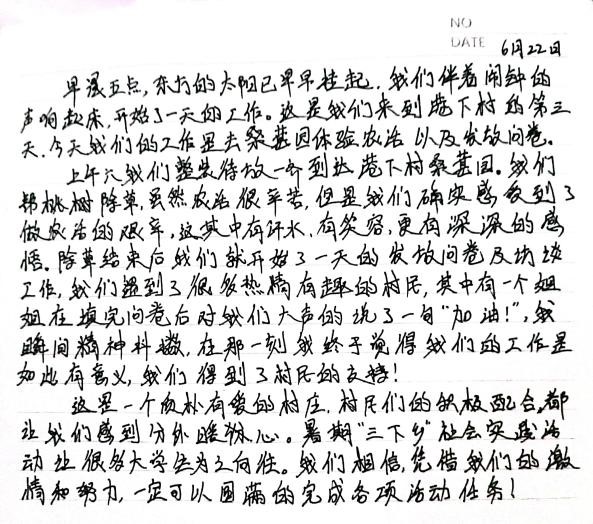 NO
DATE 6月22日
早晨五点，东方的太阳已早早挂起，我们伴着闹钟的
声响起床，开始了一天的工作。这是我们来到 下村的第三
天，今天我们的工作是去桑基园体验农活以及发放问卷。
上午六我们整装待放一齐到达 下村桑基园。我们
帮桃树除草，虽然农活很辛苦，但是我们确实感受到了
做农活的艰辛，这其中有汗水，有笑容，更有深深的感
悟。除草结束后我们就开始了一天的发放问卷及访谈
工作，我们遇到了很多热情有趣的村民，其中有一个姐
姐在填完问卷后对我们大声的说了一句"加油！"，我
瞬间精神抖擞，在那一刻我终于觉得我们的工作是
如此有意义，我们得到了村民的支持！
这是一个质朴有爱的村庄，村民们的积极配合，都
让我们感到分外暖心。暑期"三下乡"社会实践活
动让很多大学生为之向往。我们相信，凭借我们的激
情和努力，一定可以圆满的完成各项活动任务！